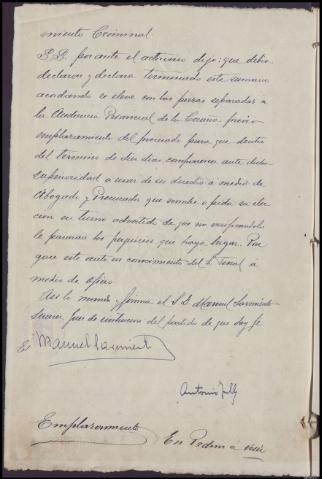 miento Criminal
S.S. por ante el actuario dijo: que debia
declarar y declara terminado este sumario
acordando se eleve con las piezas separadas a
la Audiencia Provincial de la Coruña previo
emplazamiento del procesado para que dentro
del termino de diez dias comparezca ante dicha
superioridad a usar de su derecho a medio de
Abogado y Procurador que nombre o pida su elec
cion en turno advertido de que no verificandolo
le pararan los perjuicios que haya lugar. Pon
gase este auto en conocimiento del S. Fiscal á
medio de oficio
Asi lo mando y firma el S. D. Manuel Sarmiento
Suarez Juez de instruccion del partido de que doy fe
Manuel Sarmiento
Antonio
Emplazamiento
En Padron á